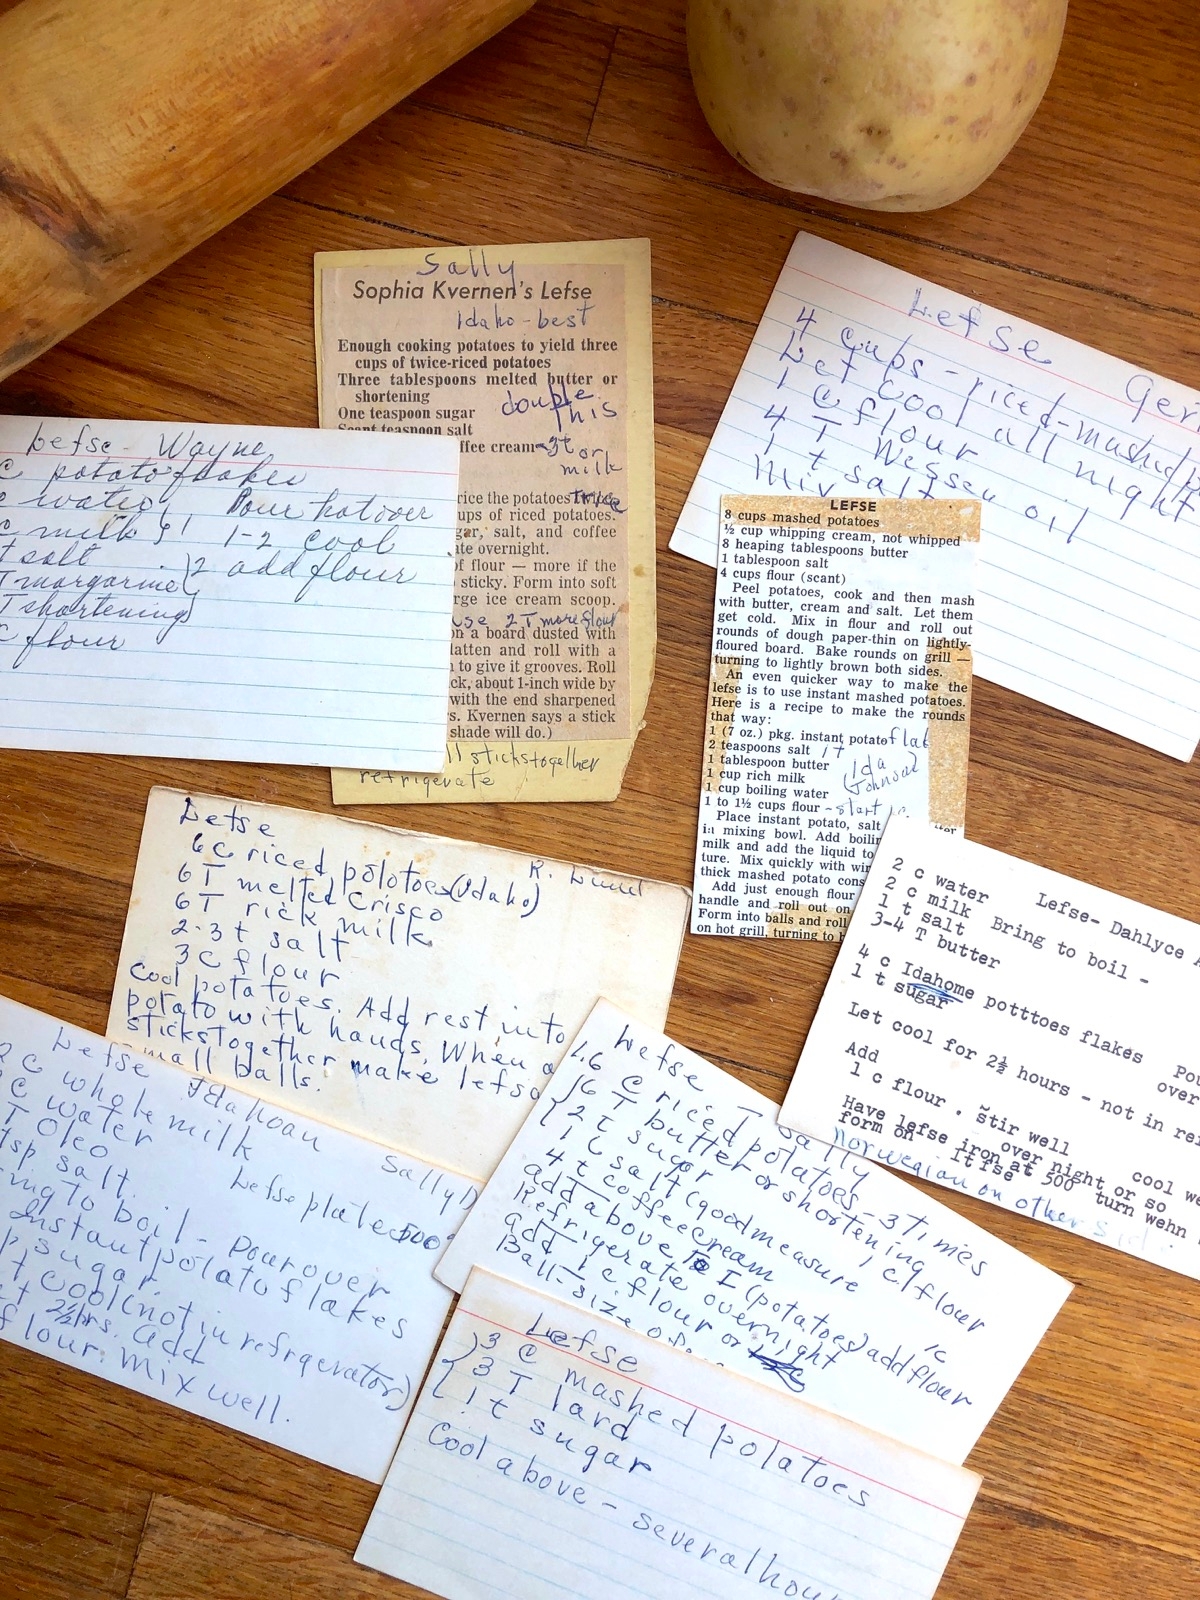 Sally
Sophia Kvernen's Lefse
Idaho - best
Enough cooking potatoes to yield three
cups of twice-riced potatoes
Three tablespoons melted butter or
shortening
One teaspoon sugar
double this
Scant teaspoon salt
ffee cream - 3t or milk
rice the potatoes twice
ups of riced potatoes.
gar, salt, and coffee
ate overnight.
of flour — more if the
sticky. Form into soft
rge ice cream scoop.
use 2 T more flour
on a board dusted with
latten and roll with a
to give it grooves. Roll
ck, about 1-inch wide by
with the end sharpened
s. Kvernen says a stick
shade will do.)
ll sticks together
refrigerate
Lefse - Wayne
c potato flakes
c water
Pour hot over
c milk
1
1-2 cool
t salt
T margarine
2 add flour
T shortening
c flour
Lefse
4 cups - riced - mashed
Let cool all night
1 C flour
4 T Wessen oil
1 t salt
Mix
LEFSE
8 cups mashed potatoes
½ cup whipping cream, not whipped
8 heaping tablespoons butter
1 tablespoon salt
4 cups flour (scant)
Peel potatoes, cook and then mash
with butter, cream and salt. Let them
get cold. Mix in flour and roll out
rounds of dough paper-thin on lightly-
floured board. Bake rounds on grill —
turning to lightly brown both sides.
An even quicker way to make the
lefse is to use instant mashed potatoes.
Here is a recipe to make the rounds
that way:
1 (7 oz.) pkg. instant potato flak
2 teaspoons salt 1 T
1 tablespoon butter
Ida Johnson
1 cup rich milk
1 cup boiling water
1 to 1½ cups flour - start
Place instant potato, salt
tter
in mixing bowl. Add boilin
milk and add the liquid to
ture. Mix quickly with wir
thick mashed potato cons
Add just enough flour
handle and roll out on
Form into balls and roll
on hot grill, turning to b
Lefse
R. Lund
6 C riced potatoes (Idaho)
6 T melted Crisco
6 T rick milk
2-3 t salt
3 C flour
Cool potatoes. Add rest into
potato with hands. When a
sticks together make lefse
small balls.
Lefse- Dahlyce A
2 c water
2 c milk Bring to boil -
1 t salt
3-4 T butter
4 c Idahome potttoes flakes
1 t sugar
Pou
over
Let cool for 2½ hours - not in re
Add
1 c flour . Stir well
cool we
Have lefse iron at 500
over night or so
form on
turn wehn
norwegian on other
Lefse Idahoan
Sally D
2 C whole milk
C water
T Oleo
Lefse plate 500°
tsp salt.
ing to boil - Pour over
Instant potato flakes
p. sugar.
t cool (not in refrgerator)
2½ hrs. Add
flour. Mix well.
Lefse
Sally
1. 6 C riced potatoes - 3 times
6 T butter or shortening
2 t sugar
1 t salt (good measure
4 t coffee cream
1 c flour
add above to I (potatoes) add flour
Refrigerate overnight
1c
add 1 c flour or
Ball-size of
Lefse
3 C mashed potatoes
3 T lard
1 t sugar
Cool above - several hou